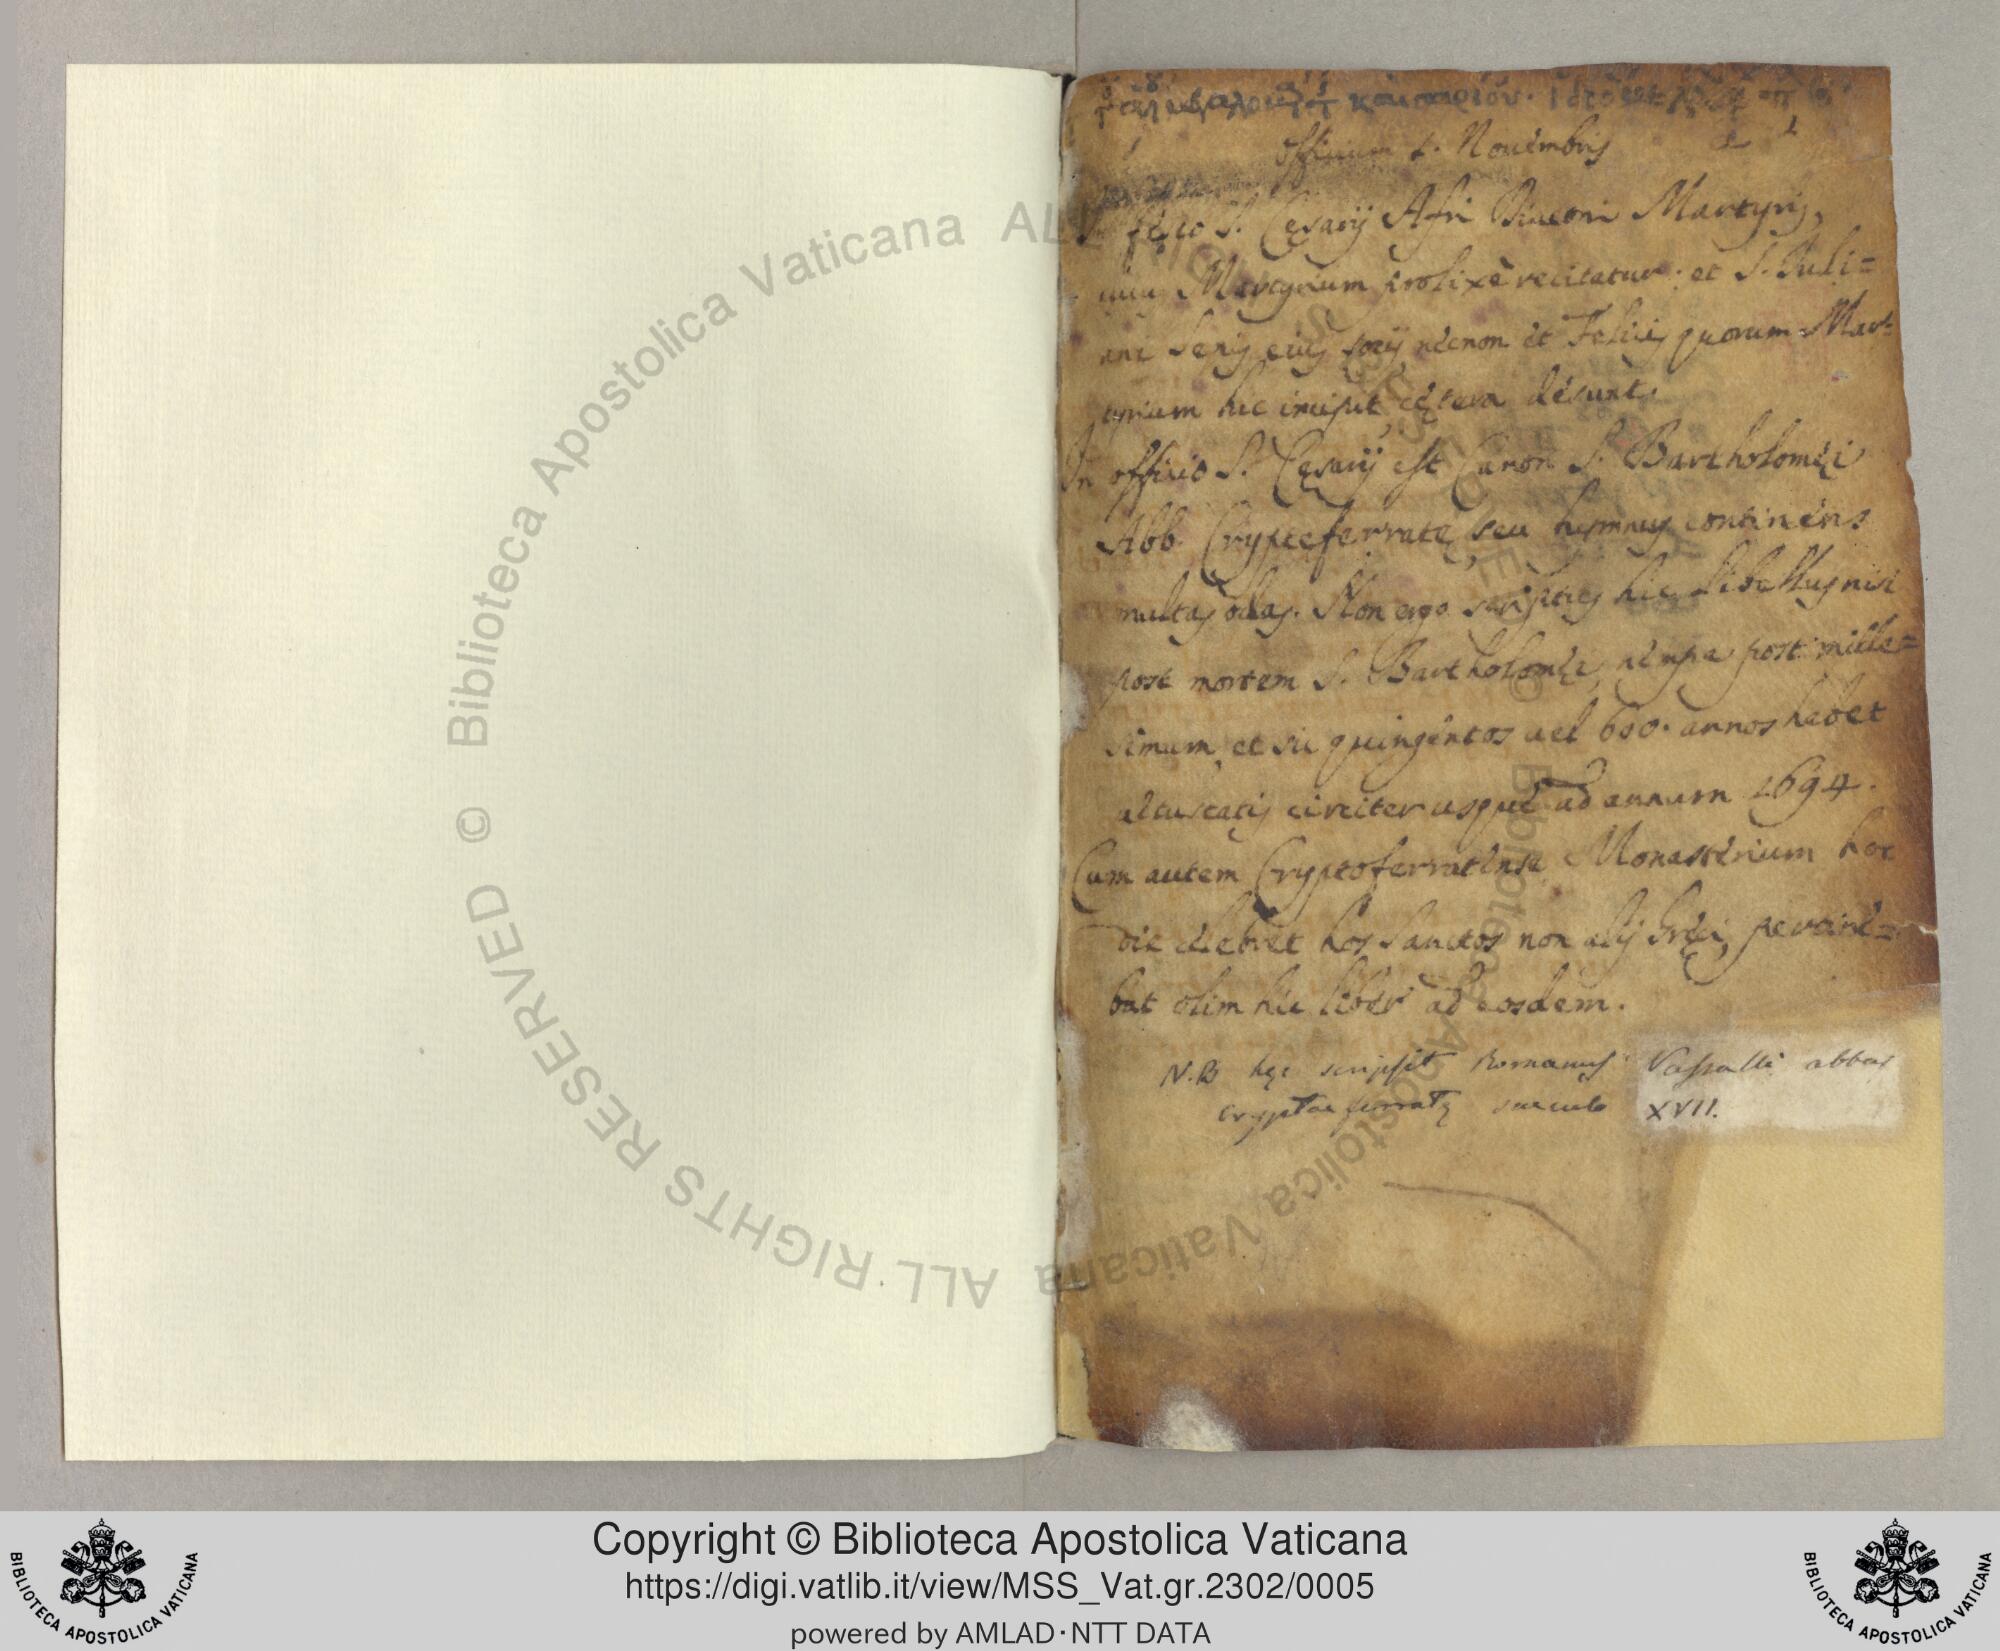 Officium 1. Novembris
festo S. Cęsarij Afri Diaconi Martyris,
cuius Martyrium prolixe recitatur: et S. Iuli=
ani Senis eius socij necnon et Felicis quorum Mar=
tyrium hic incipit, cętera desunt.
In officio S. Cęsarij est Canon S. Bartholomęi
Abb. Cryptęferratę, seu hymnus continens
multas odas. Non ergo scriptus hic libellus nisi
post mortem S. Bartholomęi, nempe post mille=
simum, et sic quingentos vel 600. annos habet
vetustatis circiter usque ad annum 1694.
Cum autem Cryptoferratense Monasterium hoc
die celebret hos Sanctos non alij Gręci, pertine=
bat olim hic liber ad eosdem.
N.B hęc scripsit Romanus Vassalli abbas
Cryptae ferratę saeculo XVII.
© Biblioteca Apostolica Vaticana ALL RIGHTS RESERVED
© Biblioteca Apostolica Vaticana ALL RIGHTS RESERVED
BIBLIOTECA APOSTOLICA VATICANA
Copyright © Biblioteca Apostolica Vaticana
https://digi.vatlib.it/view/MSS_Vat.gr.2302/0005
powered by AMLAD·NTT DATA
BIBLIOTECA APOSTOLICA VATICANA